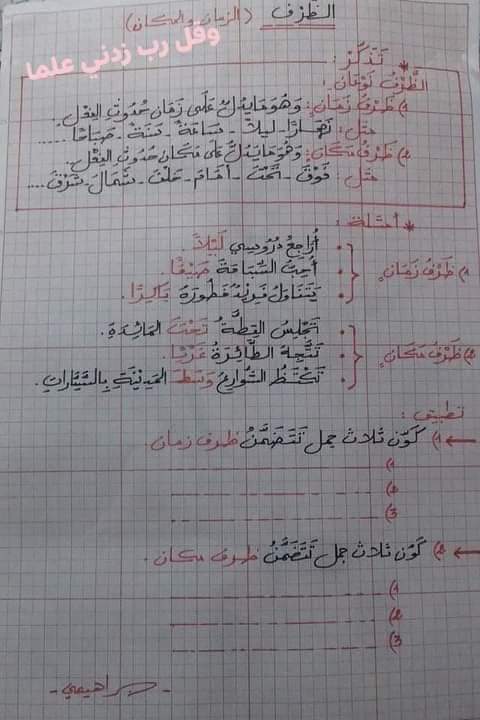 الظَّرْف (الزمان والمكان)
وقل رب زدني علما
* تَذَكَّرْ :
الظَّرْفُ نَوْعَانِ :
1) ظَرْفُ زَمَانٍ: وَهُوَ مَا يَدُلُّ عَلَى زَمَانِ حُدُوثِ الفِعْلِ.
مثل: نَهَارًا - ليلاً - سَاعَةً - سَنَةً - صَبَاحًا ....
2) ظَرْفُ مَكَانٍ: وَهُوَ مَا يَدُلُّ عَلَى مَكَانِ حُدُوثِ الفِعْلِ.
مثل : فَوْقَ - تَحْتَ - أَمَامَ - خَلْفَ - شَمَالَ - شَرْقَ ....
* أمثلة :
1) ظَرْفُ زَمَانٍ
• أُرَاجِعُ دُرُوسِي لَيْلاً.
• أُحِبُّ السِّبَاحَةَ صَيْفًا.
• يَتَنَاوَلُ فَرِيدٌ فَطُورَهُ بَاكِرًا.
2) ظَرْفُ مَكَانٍ
• تَجْلِسُ القِطَّةُ تَحْتَ المَائِدَةِ.
• تَتَّجِهُ الطَّائِرَةُ غَرْبًا.
• تَكْتَظُّ الشَّوَارِعُ وَسَطَ المَدِينَةِ بِالسَّيَّارَاتِ.
تطبيق :
← 1) كَوِّن ثلاث جمل تَتَضَمَّنُ ظرف زمان.
1)
2)
3)
← 2) كَوِّن ثلاث جمل تَتَضَمَّنُ ظرف مكان.
1)
2)
3)